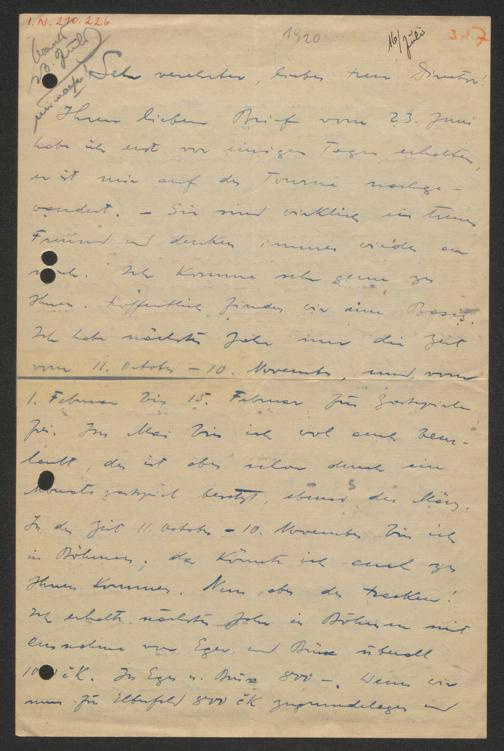 I.N. 210.226
1920
16/Juli
337
23. Juli
Sehr verehrter, lieber Herr Direktor!
Ihren lieben Brief vom 23. Juni
habe ich erst vor einigen Tagen erhalten,
er ist mir auf der Tournee nachge-
wandert. – Sie sind wirklich ein treuer
Freund und denken immer wieder an
mich. Ich komme sehr gerne zu
Ihnen. Hoffentlich finden wir eine Basis.
Ich habe nächstes Jahr nur die Zeit
vom 11. October – 10. November, und vom
1. Februar bis 15. Februar für Gastspiele
frei. Im Mai bin ich wol auch beur-
laubt, der ist aber schon durch ein
Monatsgastspiel besetzt, ebenso der März.
In der Zeit 11. October – 10. November bin ich
in Böhmen, da könnte ich auch zu
Ihnen kommen. Nun aber der
Ich erhalte nächstes Jahr in Böhmen mit
Ausnahme von Eger und Brüx überall
čK. In Eger u. Brüx 800 –. Wenn wir
nun für Elberfeld 800 čK zugrundelegen und